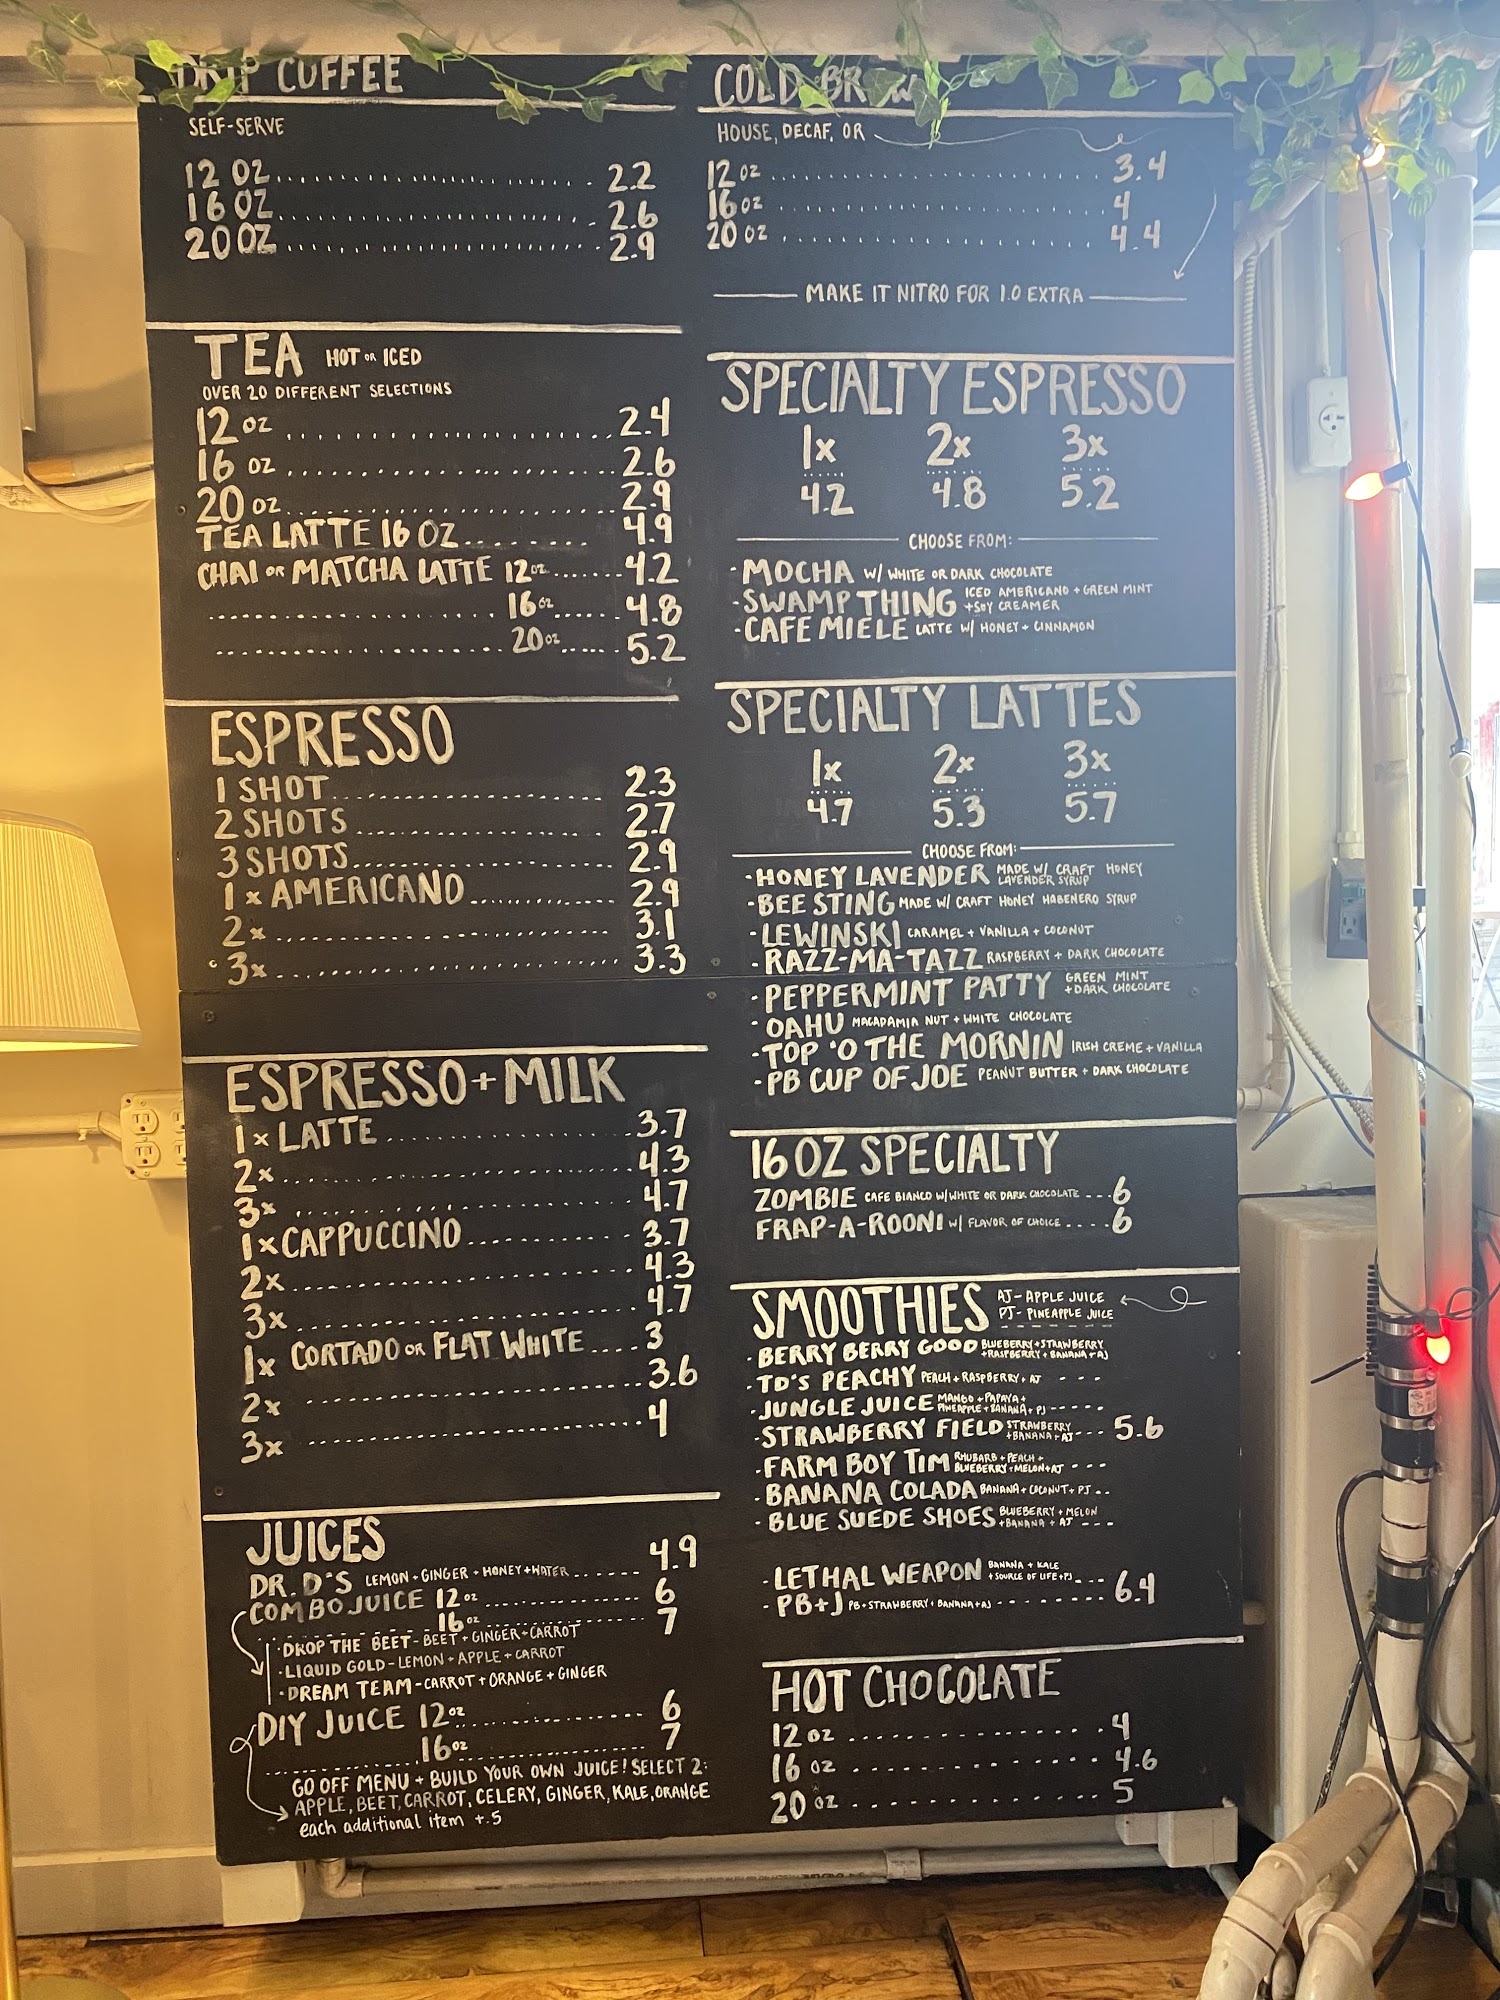 DRIP COFFEE
SELF-SERVE
12 OZ 2.2
16 OZ 2.6
20 OZ 2.9
TEA HOT OR ICED
OVER 20 DIFFERENT SELECTIONS
12 OZ 2.4
16 OZ 2.6
20 OZ 2.9
TEA LATTE 16 OZ 4.9
CHAI OR MATCHA LATTE 12 OZ 4.2
16 OZ 4.8
20 OZ 5.2
ESPRESSO
1 SHOT 2.3
2 SHOTS 2.7
3 SHOTS 2.9
1x AMERICANO 2.9
2x 3.1
3x 3.3
ESPRESSO + MILK
1x LATTE 3.7
2x 4.3
3x 4.7
1x CAPPUCCINO 3.7
2x 4.3
3x 4.7
1x CORTADO OR FLAT WHITE 3
2x 3.6
3x 4
JUICES
DR. D'S LEMON + GINGER + HONEY + WATER 4.9
COMBO JUICE 12 OZ 6
16 OZ 7
· DROP THE BEET - BEET + GINGER + CARROT
· LIQUID GOLD - LEMON + APPLE + CARROT
· DREAM TEAM - CARROT + ORANGE + GINGER
DIY JUICE 12 OZ 6
16 OZ 7
GO OFF MENU + BUILD YOUR OWN JUICE! SELECT 2:
APPLE, BEET, CARROT, CELERY, GINGER, KALE, ORANGE
each additional item +.5
COLD BREW
HOUSE, DECAF, OR
12 OZ 3.4
16 OZ 4
20 OZ 4.4
MAKE IT NITRO FOR 1.0 EXTRA
SPECIALTY ESPRESSO
1x 2x 3x
4.2 4.8 5.2
CHOOSE FROM:
- MOCHA W/ WHITE OR DARK CHOCOLATE
- SWAMP THING ICED AMERICANO + GREEN MINT
+ SOY CREAMER
- CAFE MIELE LATTE W/ HONEY + CINNAMON
SPECIALTY LATTES
1x 2x 3x
4.7 5.3 5.7
CHOOSE FROM:
- HONEY LAVENDER MADE W/ CRAFT HONEY
LAVENDER SYRUP
- BEE STING MADE W/ CRAFT HONEY HABENERO SYRUP
- LEWINSKI CARAMEL + VANILLA + COCONUT
- RAZZ-MA-TAZZ RASPBERRY + DARK CHOCOLATE
- PEPPERMINT PATTY GREEN MINT
+ DARK CHOCOLATE
- OAHU MACADAMIA NUT + WHITE CHOCOLATE
- TOP 'O THE MORNIN IRISH CREME + VANILLA
- PB CUP OF JOE PEANUT BUTTER + DARK CHOCOLATE
16 OZ SPECIALTY
ZOMBIE CAFE BIANCO W/ WHITE OR DARK CHOCOLATE --- 6
FRAP-A-ROONI W/ FLAVOR OF CHOICE .... 6
SMOOTHIES AJ - APPLE JUICE
PJ - PINEAPPLE JUICE
- BERRY BERRY GOOD BLUEBERRY + STRAWBERRY
+ RASPBERRY + BANANA + AJ
- TD'S PEACHY PEACH + RASPBERRY + AJ
- JUNGLE JUICE MANGO + PAPAYA +
PINEAPPLE + BANANA + PJ
- STRAWBERRY FIELD STRAWBERRY
+ BANANA + AJ --- 5.6
- FARM BOY TIM RHUBARB + PEACH +
BLUEBERRY + MELON + AJ
- BANANA COLADA BANANA + COCONUT + PJ
- BLUE SUEDE SHOES BLUEBERRY + MELON
+ BANANA + AJ
- LETHAL WEAPON BANANA + KALE
+ SOURCE OF LIFE + PJ --- 6.4
- PB+J PB + STRAWBERRY + BANANA + AJ
HOT CHOCOLATE
12 OZ 4
16 OZ 4.6
20 OZ 5